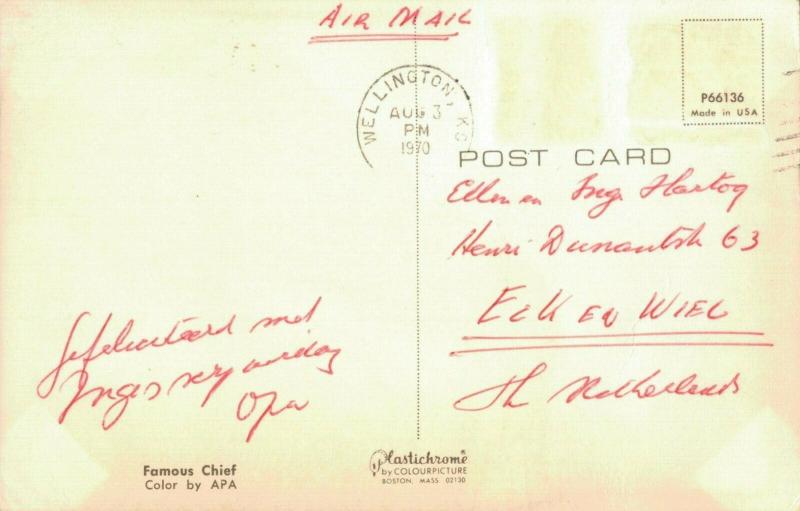 AIR MAIL
WELLINGTON, KS
AUG 3
PM
1970
P66136
Made in USA
POST CARD
Ellen en Inge Hartog
Henri Dunantstr 63
ECK EN WIEL
The Netherlands
Gefeliciteerd met
Inges verjaardag
Opa
Famous Chief
Color by APA
Plastichrome
by COLOURPICTURE
BOSTON, MASS. 02130